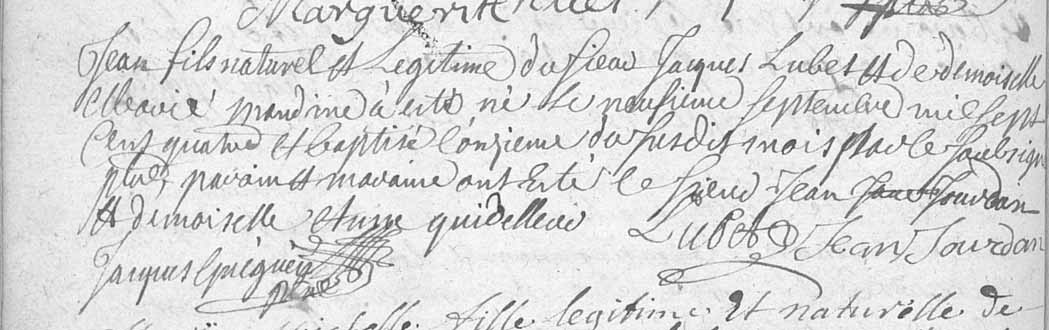 Marguerite
Jean fils naturel et Legitime du sieur Jaques Lubet et de demoiselle
Marie mandine à esté né le neufieme septembre mil sept
Cent quatre et baptisé l'onzieme du susdit mois par le soubsigné
pbre, parain et maraine ont esté le sieur Jean Jourdan
et demoiselle
Lubet Jean Jourdan
Jacques
fille legitime Et naturelle de